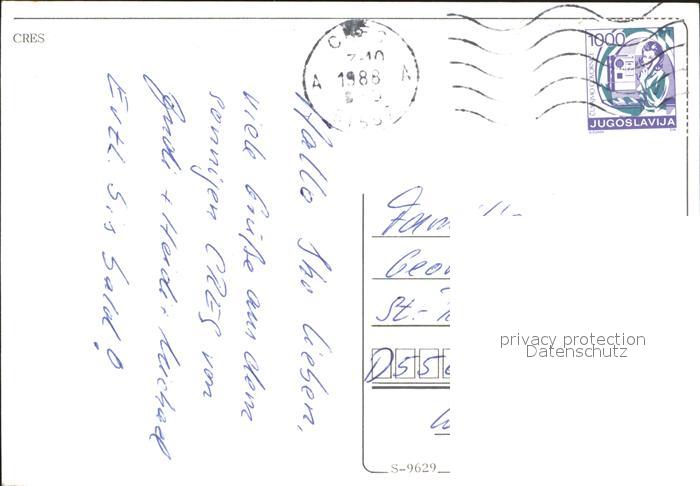 CRES
CRES
1988
A A
1000
JUGOSLAVIJA
Hallo Ihr lieben,
viele Grüße aus dem
sonnigen CRES von
Andi + Heidi + Michael
Evtl. bis bald!
Fam
Geor
St.-
D 556
privacy protection
Datenschutz
S-9629